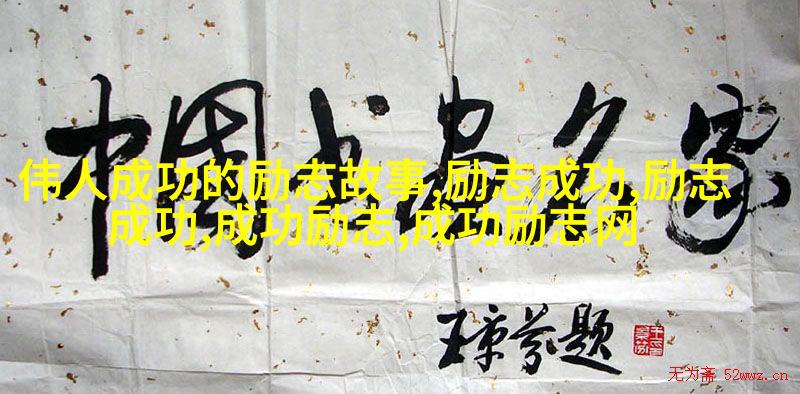 中国书画名家
伟人成功的励志故事,励志成功,励志
成功,成功励志,成功励志网
王京芬题
无为斋 52wwz.cn